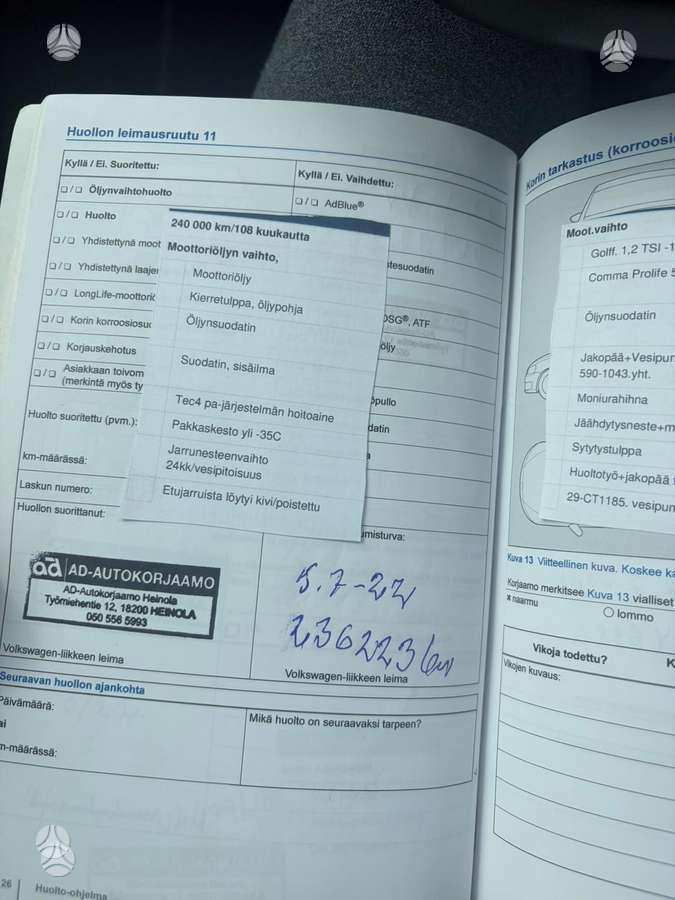 Huollon leimausruutu 11
Kyllä / Ei. Suoritettu:
/ Öljynvaihtohuolto
/ Huolto
/ Yhdistettynä moot
/ Yhdistettynä laajen
/ LongLife-moottoriö
/ Korin korroosiosuo
/ Korjauskehotus
/ Asiakkaan toivom
(merkintä myös ty
Huolto suoritettu (pvm.):
km-määrässä:
Laskun numero:
Huollon suorittanut:
Kyllä / Ei. Vaihdettu:
/ AdBlue®
tesuodatin
DSG®, ATF
öljy
240 000 km/108 kuukautta
Moottoriöljyn vaihto,
Moottoriöljy
Kierretulppa, öljypohja
Öljynsuodatin
Suodatin, sisäilma
Tec4 pa-järjestelmän hoitoaine
Pakkaskesto yli -35C
Jarrunesteenvaihto
24kk/vesipitoisuus
Etujarruista löytyi kivi/poistettu
ad AD-AUTOKORJAAMO
AD-Autokorjaamo Heinola
Työmiehentie 12, 18200 HEINOLA
050 556 5993
Volkswagen-liikkeen leima
5.7-22
236223km
Volkswagen-liikkeen leima
Seuraavan huollon ajankohta
Päivämäärä:
ai
m-määrässä:
Mikä huolto on seuraavaksi tarpeen?
26 Huolto-ohjelma
Korin tarkastus (korroosi
Moot.vaihto
Golff. 1,2 TSI -1
Comma Prolife 5
Öljynsuodatin
Jakopää+Vesipum
590-1043.yht.
Moniurahihna
Jäähdytysneste+m
Sytytystulppa
Huoltotyö+jakopää
29-CT1185. vesipum
Kuva 13 Viitteellinen kuva. Koskee ka
Korjaamo merkitsee Kuva 13 vialliset
x naarmu
lommo
Vikoja todettu?
K
Vikojen kuvaus: